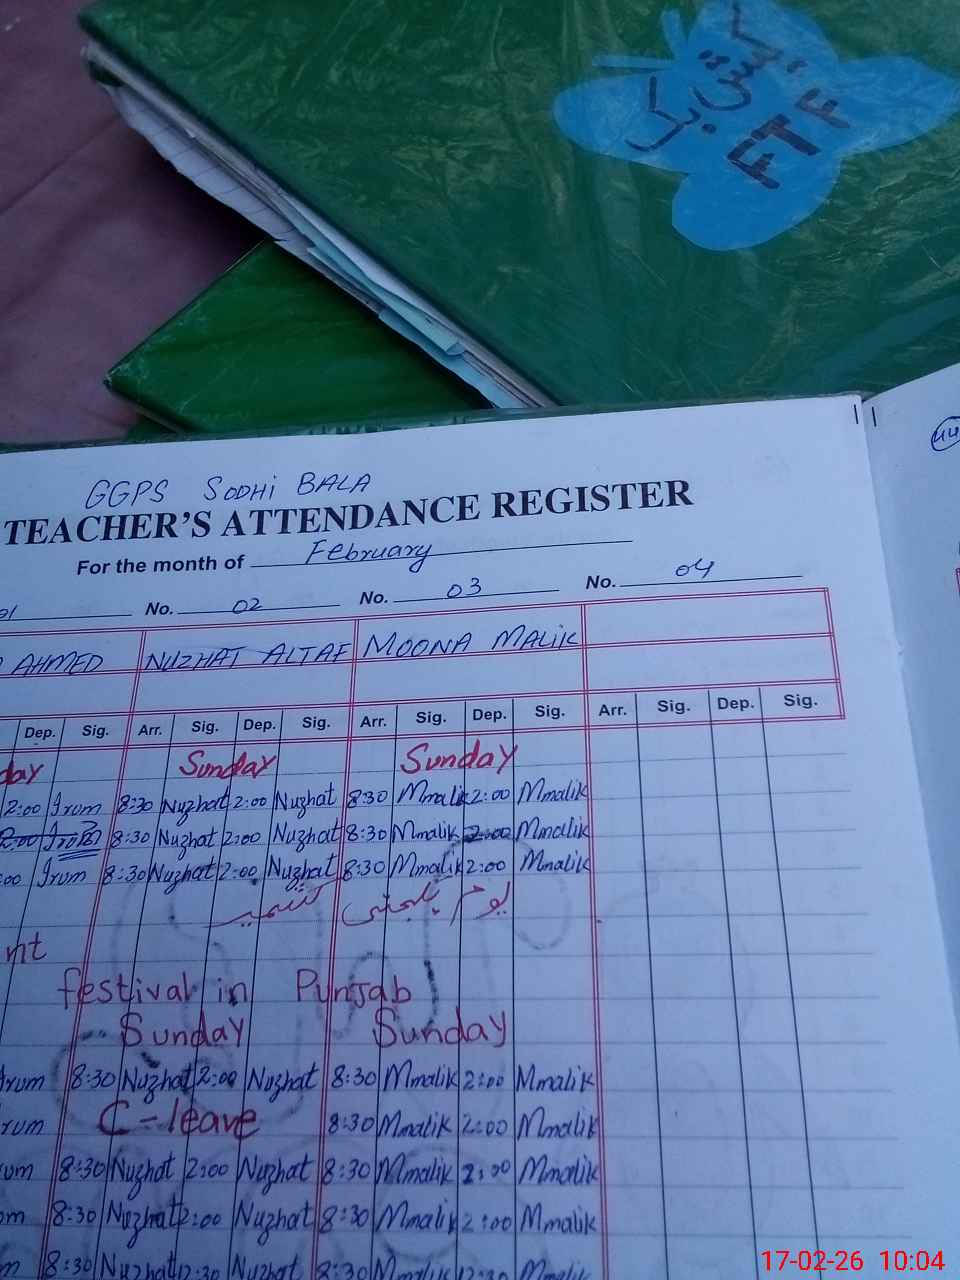 FTF
GGPS SODHI BALA
TEACHER'S ATTENDANCE REGISTER
For the month of February
01 No. 02 No. 03 No. 04
AHMED NUZHAT ALTAF MOONA MALIK
Dep. Sig. Arr. Sig. Dep. Sig. Arr. Sig. Dep. Sig. Arr. Sig. Dep. Sig.
day Sunday Sunday
2:00 Irum 8:30 Nuzhat 2:00 Nuzhat 8:30 Mmalik 2:00 Mmalik
2:00 Irum 8:30 Nuzhat 2:00 Nuzhat 8:30 Mmalik 2:00 Mmalik
:00 Irum 8:30 Nuzhat 2:00 Nuzhat 8:30 Mmalik 2:00 Mmalik
یوم یکجہتی کشمیر
nt
festival in Punjab
Sunday Sunday
Irum 8:30 Nuzhat 2:00 Nuzhat 8:30 Mmalik 2:00 Mmalik
rum C-leave 8:30 Mmalik 2:00 Mmalik
um 8:30 Nuzhat 2:00 Nuzhat 8:30 Mmalik 2:00 Mmalik
om 8:30 Nuzhat 2:00 Nuzhat 8:30 Mmalik 2:00 Mmalik
m 8:30 Nuzhat 12:30 Nuzhat 8:30 Mmalik 12:30 Mmalik
17-02-26 10:04